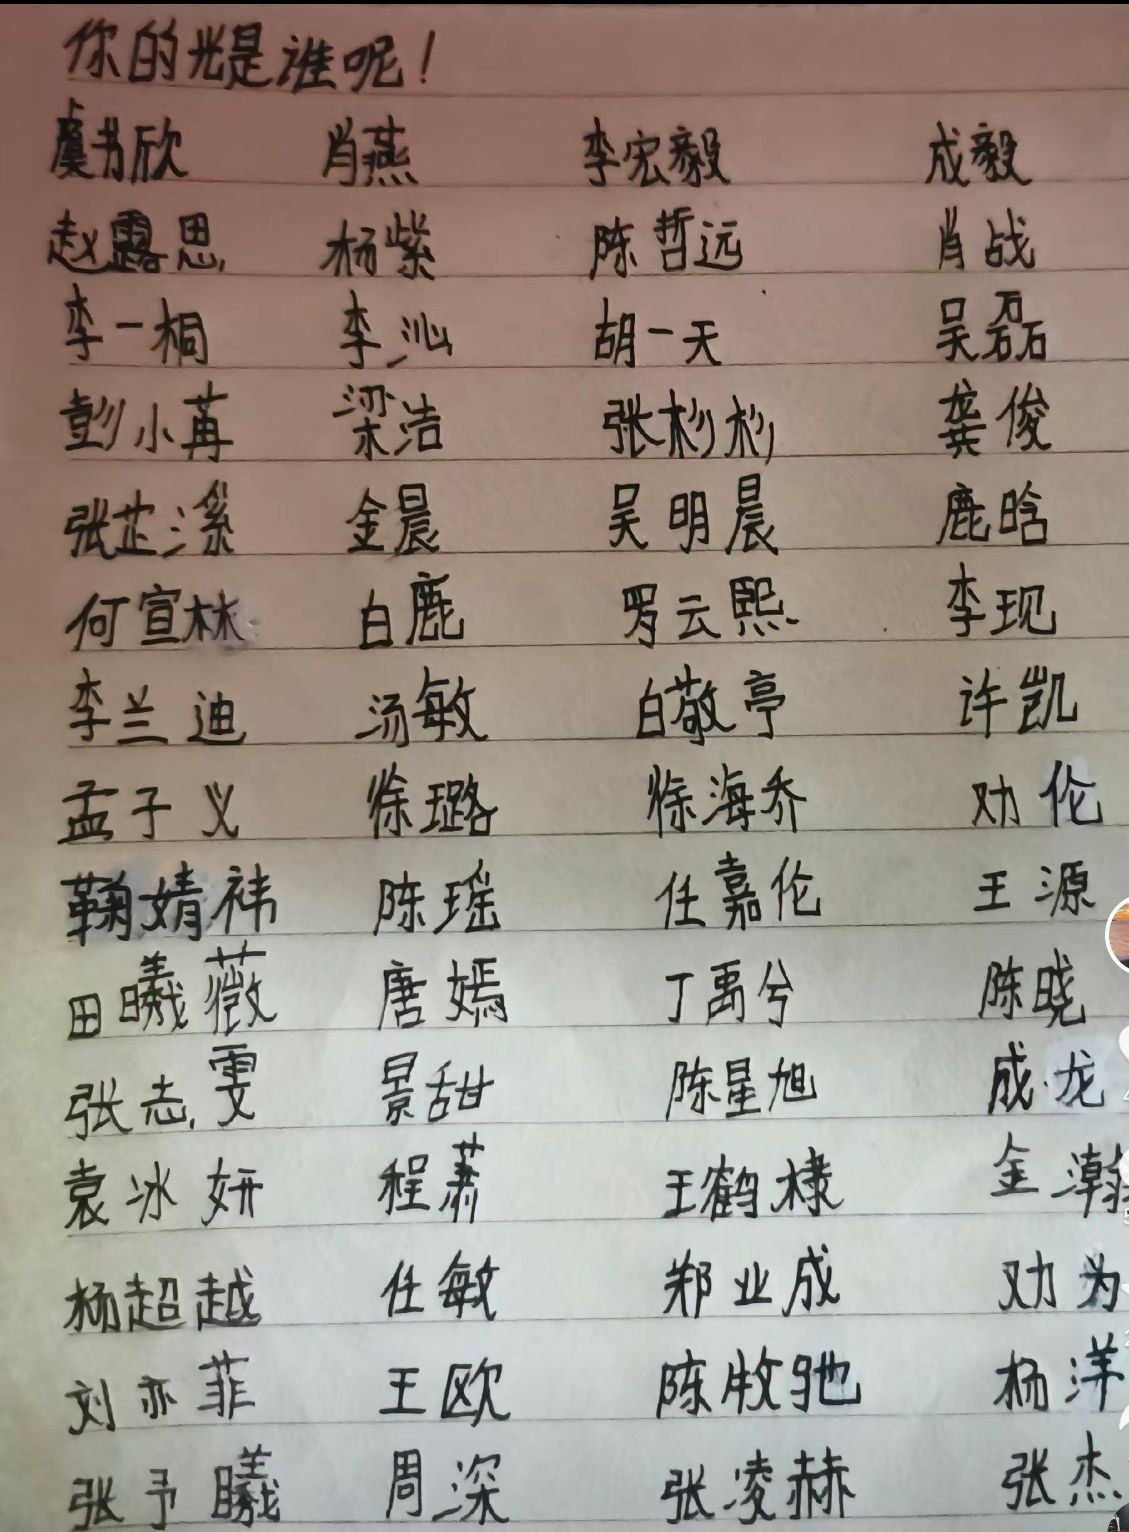 你的光是谁呢！
虞书欣 肖燕 李宏毅 成毅
赵露思 杨紫 陈哲远 肖战
李一桐 李沁 胡一天 吴磊
彭小苒 梁洁 张彬彬 龚俊
张芷溪 金晨 吴明晨 鹿晗
何宣林 白鹿 罗云熙 李现
李兰迪 汤敏 白敬亭 许凯
孟子义 徐璐 徐海乔 邓伦
鞠婧祎 陈瑶 任嘉伦 王源
田曦薇 唐嫣 丁禹兮 陈晓
张志雯 景甜 陈星旭 成龙
袁冰妍 程萧 王鹤棣 金瀚
杨超越 任敏 郑业成 邓为
刘亦菲 王欧 陈牧驰 杨洋
张予曦 周深 张凌赫 张杰